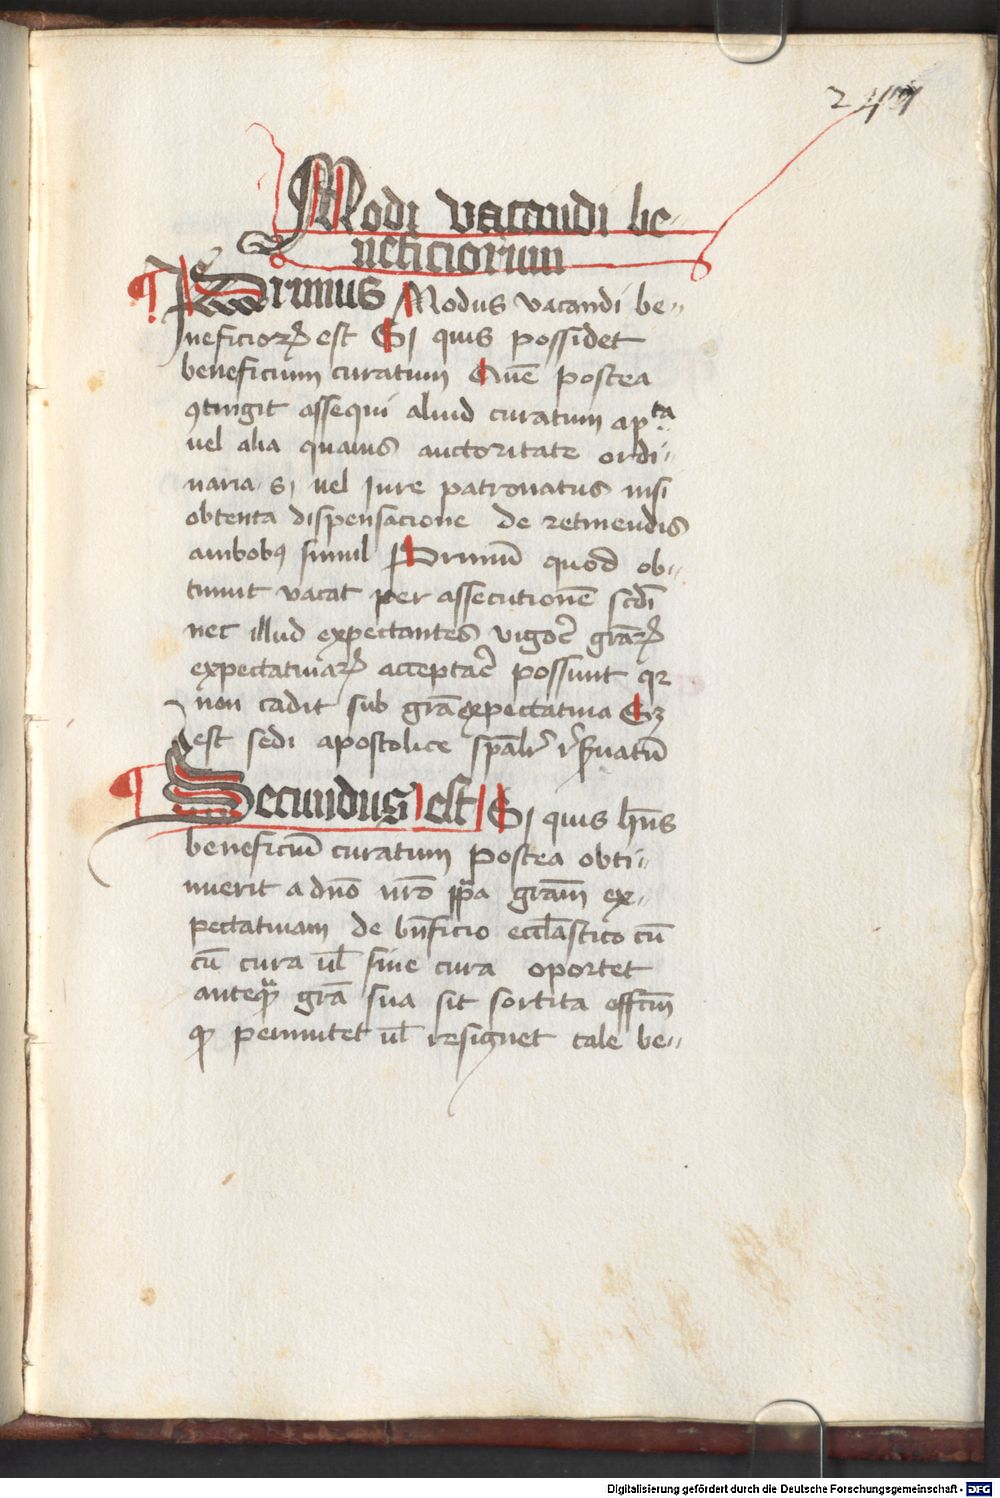 247
Modi vacandi be-
neficiorum
¶ Primus Modus vacandi be-
neficioꝝ est Si quis possidet
beneficium curatum Quē postea
ꝯtingit assequi aliud curatum apᵗᵃ
uel alia quauis auctoritate ordi-
naria, si uel iure patronatus nisi
obtenta dispensacione de retinendis
ambobꝰ simul Primū quod ob-
tinuit vacat per assecutionē scdi
nec illud expectantes vigoē grāꝝ
expectatiuaꝝ acceptaē possunt qꝛ
non cadit sub grā expectatiua Eꝛ
est sedi apostolice spālr ꝛẜuatū
¶ Secundus est Si quis hn̄s
beneficiū curatum postea obti-
nuerit a dnō nrō ppa grām̄ ex-
pectatiuam de bn̄ficio eccl̄astico cū
cū cura ul̄ siue cura oportet
anteqꝫ grā sua sit sortita effcm̄
ꝙ permutet ul̄ resignet tale be-
Digitalisierung gefördert durch die Deutsche Forschungsgemeinschaft - DFG